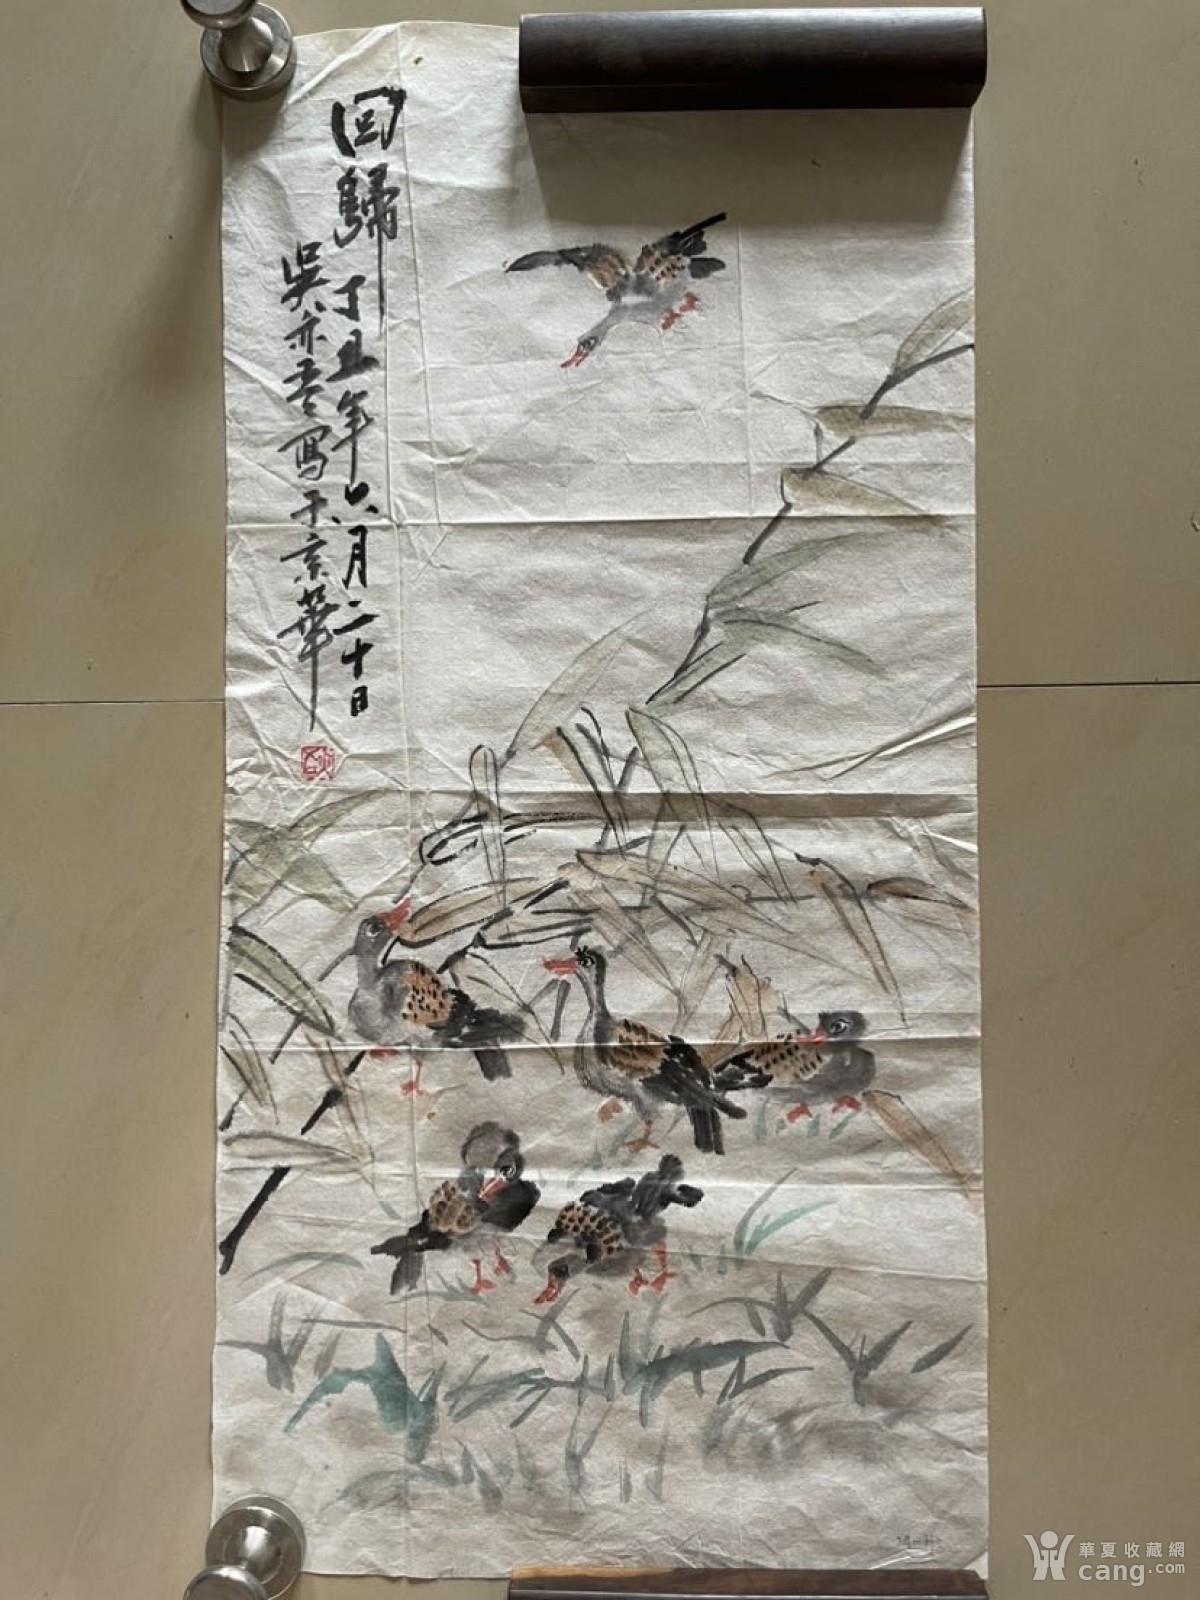 回歸
丁丑年六月二十日
吳亦吾寫于京華
華夏收藏網
cang.com